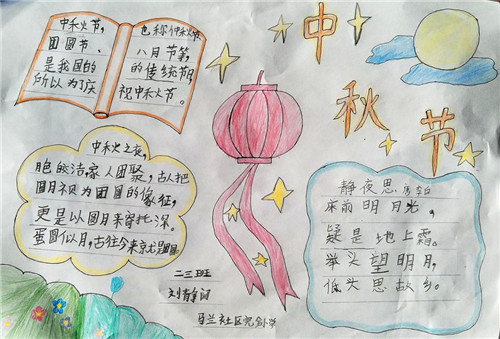 中秋节
中秋节,
团圆节、
是我国的
所以为了庆
也称仲秋
八月节等,
的传统节
祝中秋节。
中秋之夜,
皎洁,家人团聚,古人把
圆月视为团圆的象征,
更是以圆月来寄托深
圆似月,古往今来
静夜思 李白
床前明月光,
疑是地上霜。
举头望明月,
低头思故乡。
二三班
刘静
马兰社区完全小学